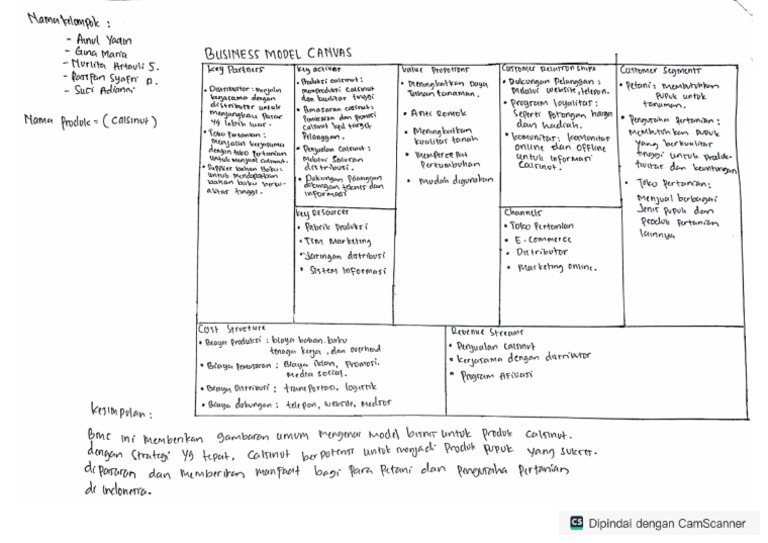 Nama Kelompok :
- Ainul Yaqin
- Gina Maria
- Murlita Artauli S.
- Syafri
- Suci
Nama Produk = (Calsinut)
BUSINESS MODEL CANVAS
Key Partners
• Distributor : Menjalin
kerjasama dengan
distributor untuk
menjangkau pasar
yg lebih luas.
• Toko Pertanian :
Menjalin kerjasama
dengan toko pertanian
untuk menjual calsinut.
• Supplier bahan baku :
untuk mendapatkan
bahan baku berku-
alitas tinggi.
Key
• Produksi calsinut :
memproduksi calsinut
dan kualitas tinggi
• Pemasaran calsinut :
Pemasaran dan promosi
calsinut kpd target
Pelanggan.
• Penjualan Calsinut :
Melalui Saluran
distribusi.
• Dukungan Pelanggan
dukungan teknis dan
informasi
Key Resources
• Pabrik Produksi
• Tim Marketing
• Jaringan distribusi
• Sistem Informasi
Value
• Meningkatkan Daya
Tahan tanaman.
• Anti Rontok
• Meningkatkan
kualitas tanah
• Mempercepat
Pertumbuhan
• Mudah digunakan
Customer
• Dukungan Pelanggan :
Melalui website, telepon.
• Program loyalitas :
Seperti potongan harga
dan hadiah.
• Komunitas : Komunitas
online dan offline
untuk informasi
Calsinut.
Channels
• Toko Pertanian
• E-Commerce
• Distributor
• Marketing online.
Customer Segments
• Petani : membutuhkan
pupuk untuk
tanaman.
• Pengusaha Pertanian :
Membutuhkan pupuk
yang berkualitas
tinggi untuk Produk-
tivitas dan keuntungan
• Toko Pertanian :
Menjual berbagai
Jenis pupuk dan
Produk Pertanian
lainnya
Cost Structure
• Biaya Produksi : biaya bahan baku
tenaga kerja, dan overhead
• Biaya Pemasaran : Biaya Iklan, Promosi,
Media sosial.
• Biaya Distribusi : transportasi, logistik
• Biaya dukungan : telepon, website, Medsos
Revenue Streams
• Penjualan Calsinut
• Kerjasama dengan distributor
• Program Afiliasi
Kesimpulan :
BMC ini memberikan gambaran umum mengenai model bisnis untuk Produk Calsinut.
dengan Strategi yg tepat, Calsinut berpotensi untuk menjadi Produk pupuk yang sukses.
di pasaran dan memberikan manfaat bagi para Petani dan Pengusaha Pertanian
di Indonesia.
CS Dipindai dengan CamScanner